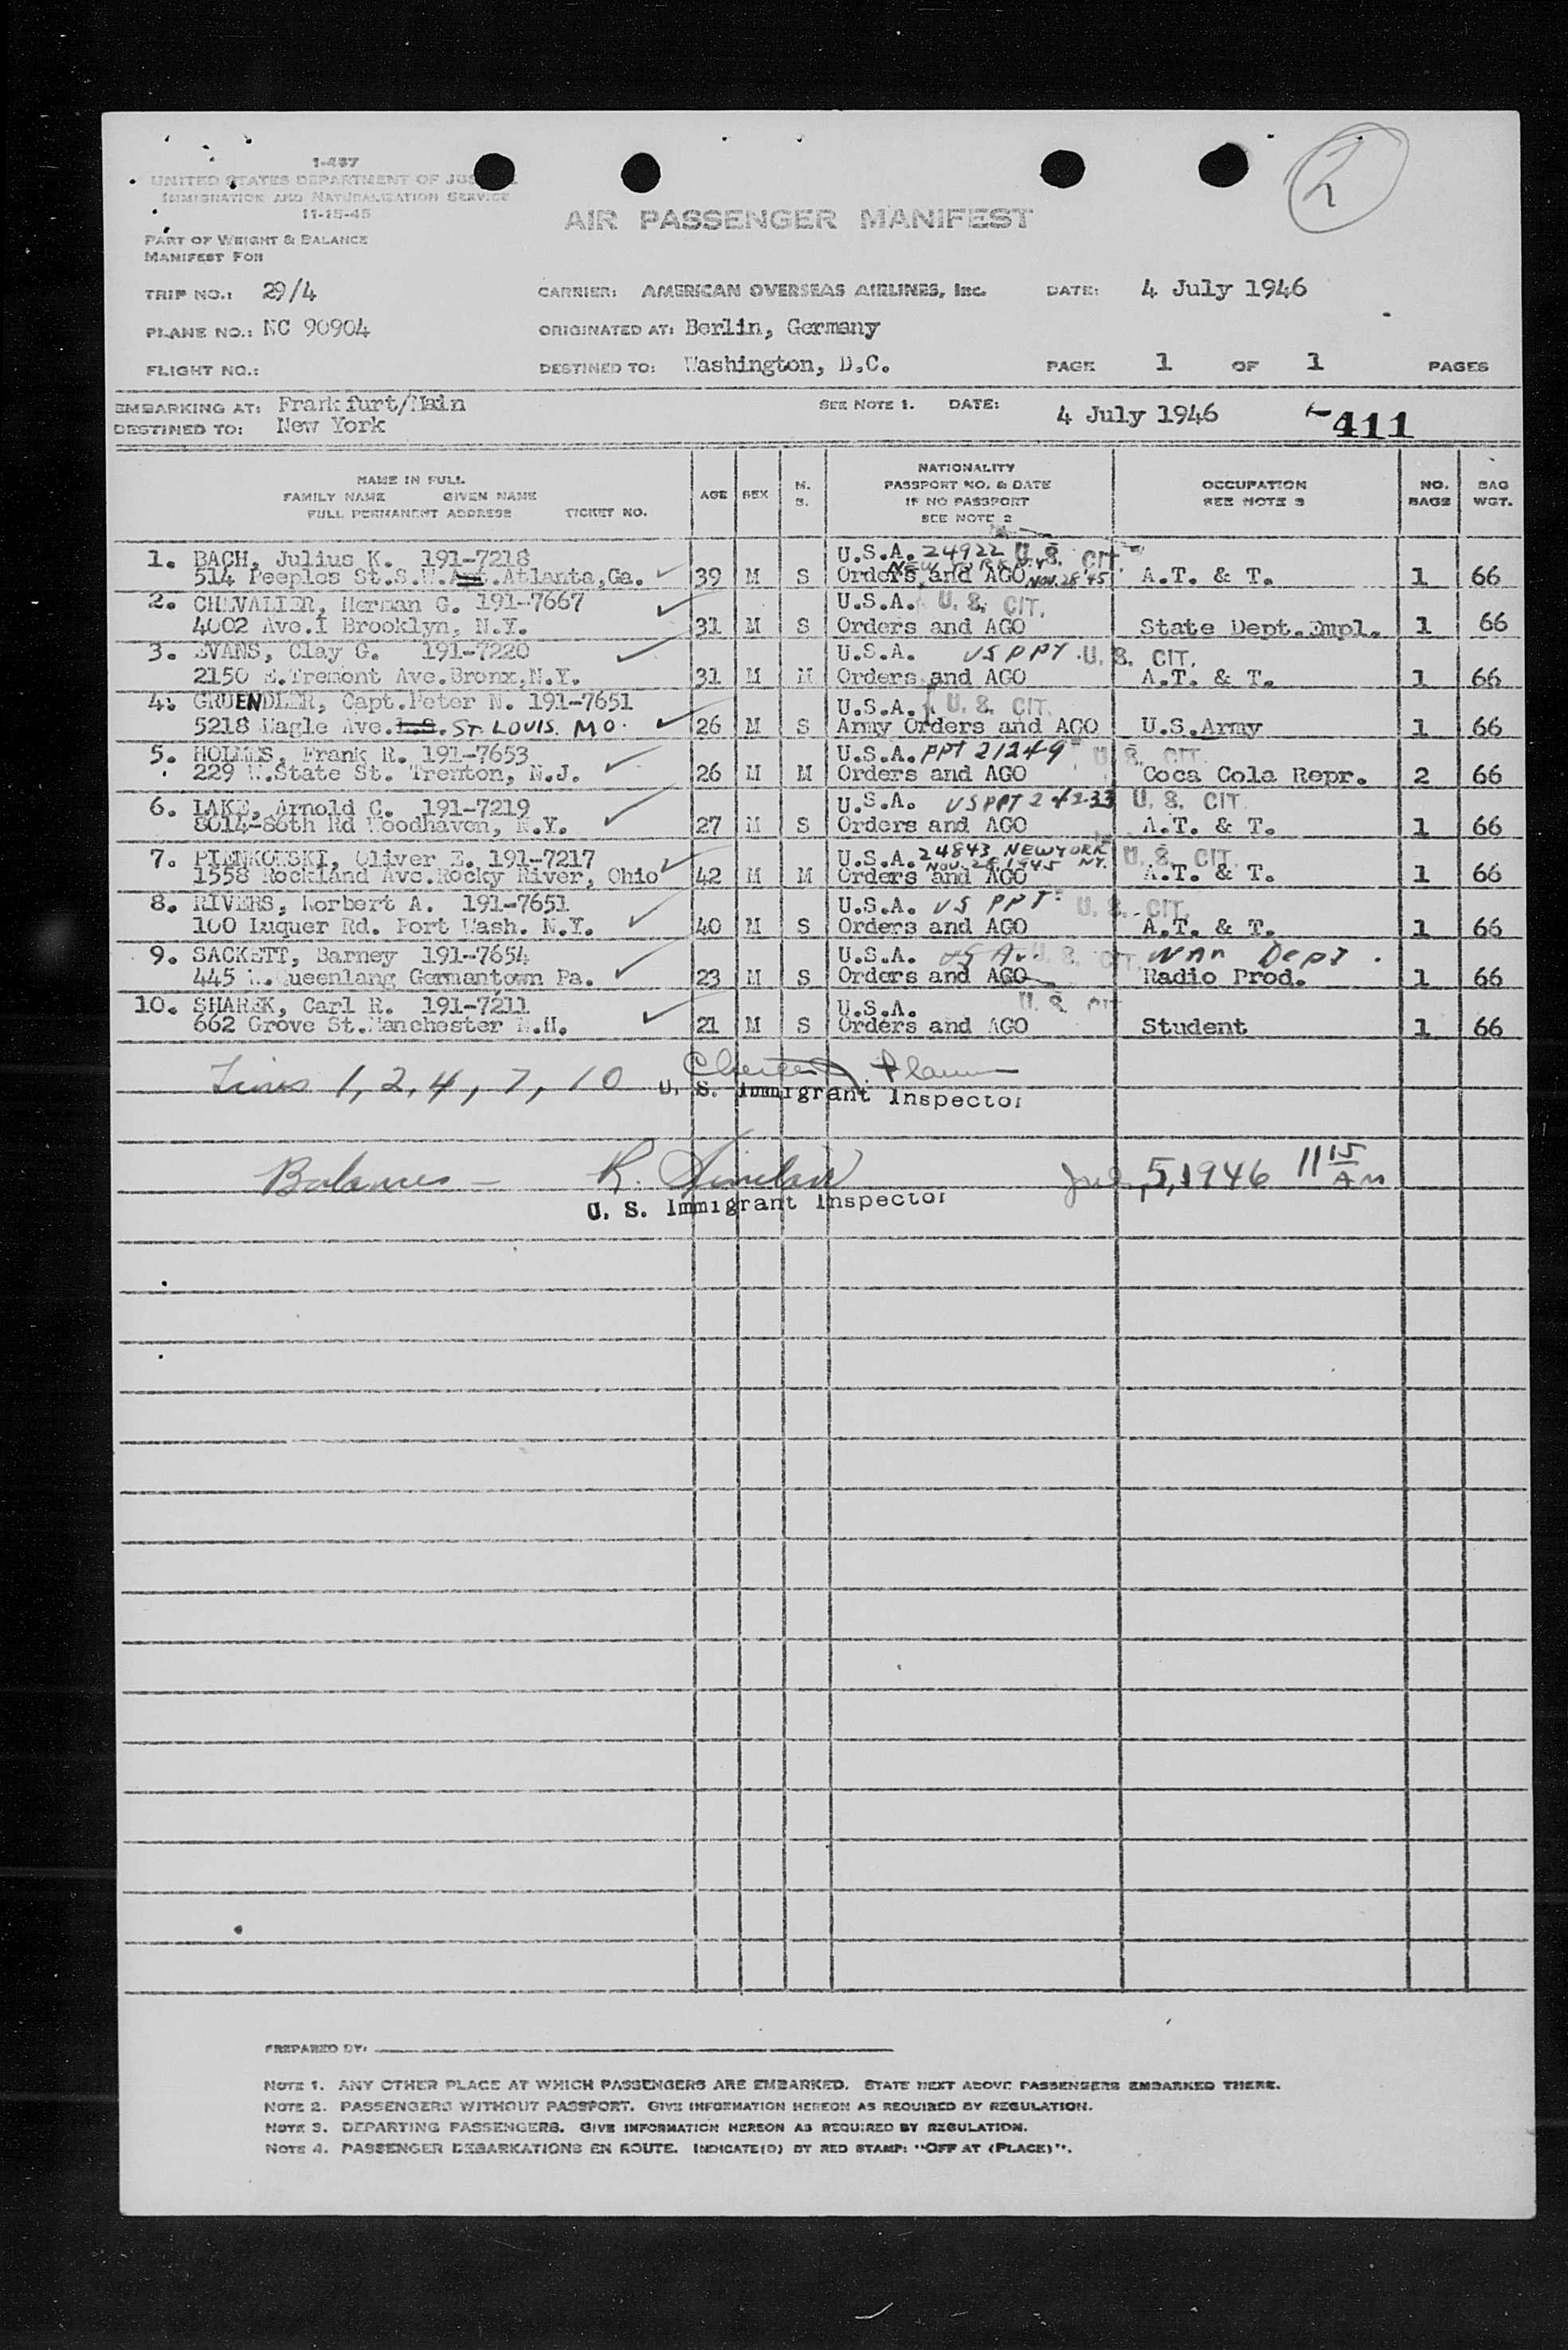 2
1-487
UNITED STATES DEPARTMENT OF JUS
IMMIGRATION AND NATURALIZATION SERVICE
11-15-45
AIR PASSENGER MANIFEST
PART OF WEIGHT & BALANCE
MANIFEST FOR
TRIP NO.: 29/4 CARRIER: AMERICAN OVERSEAS AIRLINES, Inc. DATE: 4 July 1946
PLANE NO.: NC 90904 ORIGINATED AT: Berlin, Germany
FLIGHT NO.: DESTINED TO: Washington, D.C. PAGE 1 OF 1 PAGES
EMBARKING AT: Frankfurt/Main SEE NOTE 1. DATE: 4 July 1946 411
DESTINED TO: New York
NAME IN FULL
FAMILY NAME GIVEN NAME
FULL PERMANENT ADDRESS TICKET NO.
AGE SEX M. S.
NATIONALITY
PASSPORT NO. & DATE
IF NO PASSPORT
SEE NOTE 2
OCCUPATION
SEE NOTE 3
NO. BAGS
BAG WGT.
1. BACH, Julius K. 191-7218 U.S.A. 24922 U. S. CIT.
NEW YORK N.Y.
514 Peeples St.S.W. Atlanta,Ga. 39 M S Orders and AGO NOV. 28 '45 A.T. & T. 1 66
2. CHEVALIER, Herman G. 191-7667 U.S.A. U. S. CIT.
4002 Ave.I Brooklyn, N.Y. 31 M S Orders and AGO State Dept.Empl. 1 66
3. EVANS, Clay G. 191-7220 U.S.A. US PPT U. S. CIT.
2150 E.Tremont Ave.Bronx,N.Y. 31 M M Orders and AGO A.T. & T. 1 66
4. GRUENDLER, Capt.Peter N. 191-7651 U.S.A. U. S. CIT.
5218 Nagle Ave. ST LOUIS. MO. 26 M S Army Orders and AGO U.S.Army 1 66
5. HOLMES, Frank R. 191-7653 U.S.A. PPT 21249 U. S. CIT.
229 W.State St. Trenton, N.J. 26 M M Orders and AGO Coca Cola Repr. 2 66
6. LAKE, Arnold C. 191-7219 U.S.A. US PPT U. S. CIT.
8014-86th Rd Woodhaven, N.Y. 27 M S Orders and AGO A.T. & T. 1 66
7. PIENKOWSKI, Oliver E. 191-7217 U.S.A. 24843 NEW YORK U. S. CIT.
NOV. 28 1945 NY.
1558 Rockland Ave.Rocky River, Ohio 42 M M Orders and AGO A.T. & T. 1 66
8. RIVERS, Norbert A. 191-7651 U.S.A. US PPT U. S. CIT.
100 Luquer Rd. Port Wash. N.Y. 40 M S Orders and AGO A.T. & T. 1 66
9. SACKETT, Barney 191-7654 U.S.A. U. S. CIT. WAR Dept.
445 W.Queenlang Germantown Pa. 23 M S Orders and AGO Radio Prod. 1 66
10. SHAREK, Carl R. 191-7211 U.S.A. U. S. CIT
662 Grove St.Manchester N.H. 21 M S Orders and AGO Student 1 66
Lines 1, 2, 4, 7, 10
U. S. Immigrant Inspector
Balances - R. Sinclair July 5, 1946 11 15 AM
U. S. Immigrant Inspector
PREPARED BY:
NOTE 1. ANY OTHER PLACE AT WHICH PASSENGERS ARE EMBARKED. STATE NEXT ABOVE PASSENGERS EMBARKED THERE.
NOTE 2. PASSENGERS WITHOUT PASSPORT. GIVE INFORMATION HEREON AS REQUIRED BY REGULATION.
NOTE 3. DEPARTING PASSENGERS. GIVE INFORMATION HEREON AS REQUIRED BY REGULATION.
NOTE 4. PASSENGER DEBARKATIONS EN ROUTE. INDICATE(D) BY RED STAMP: "OFF AT (PLACE)".